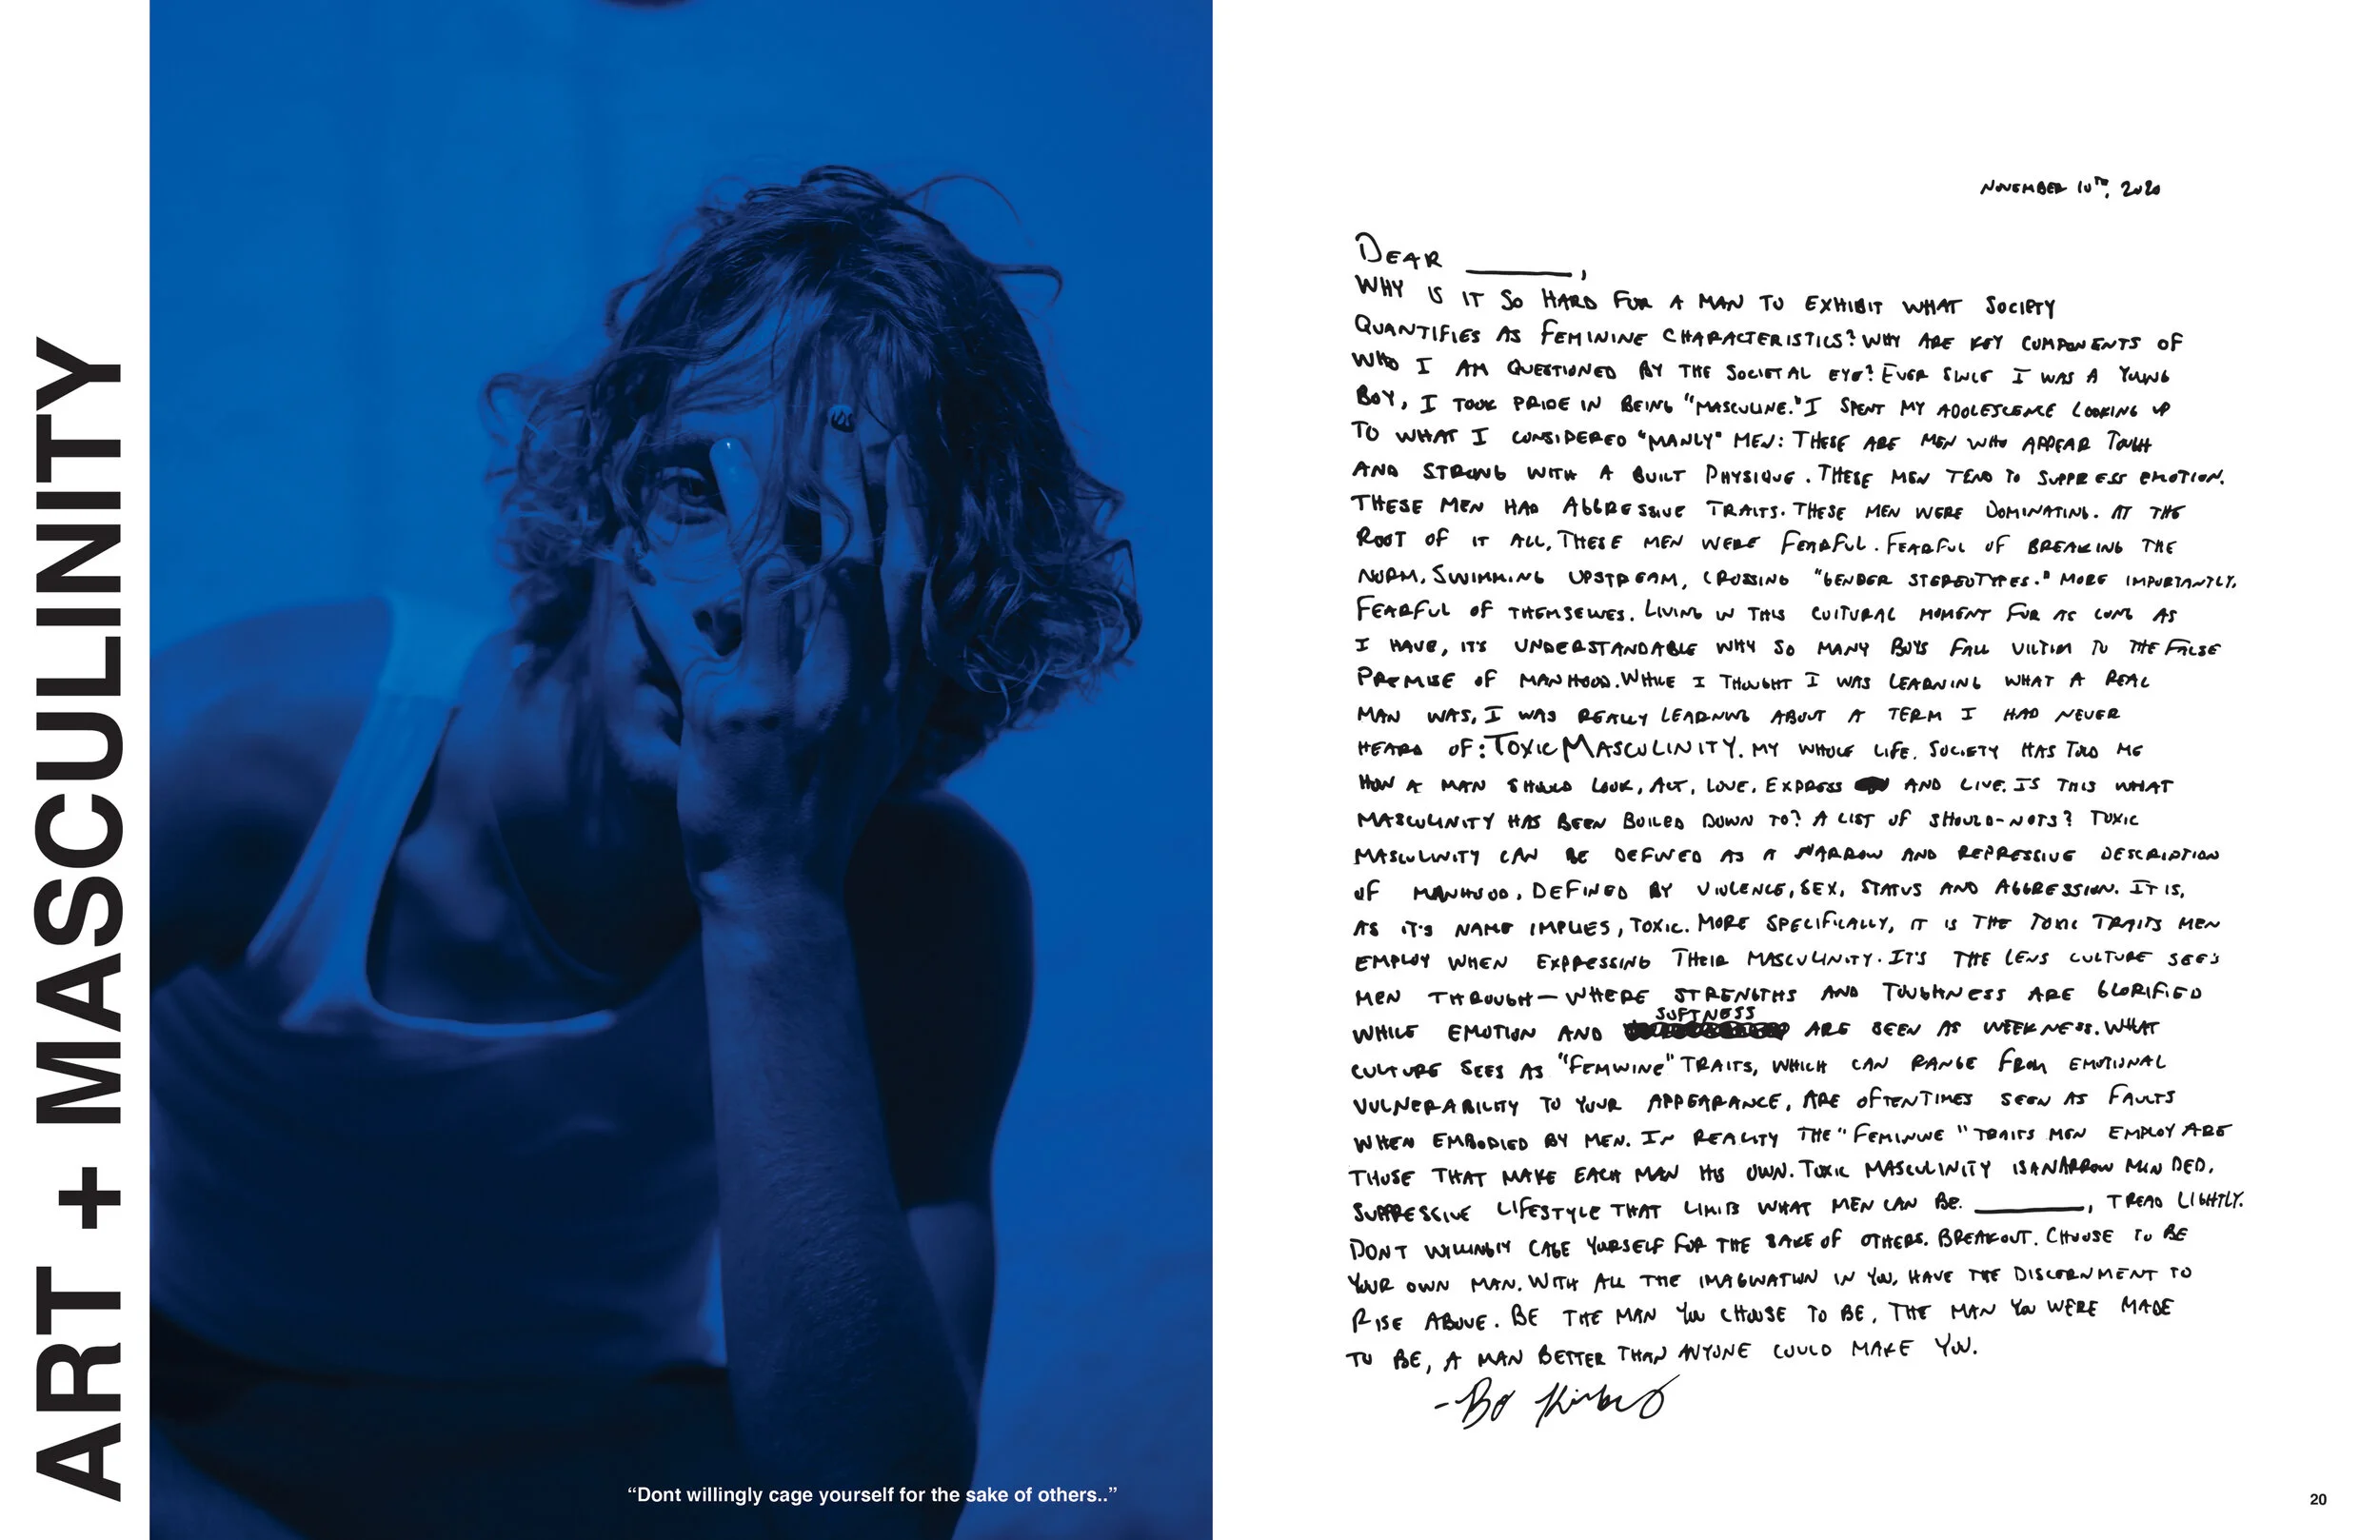 ART + MASCULINITY
“Dont willingly cage yourself for the sake of others..”
NOVEMBER 10TH, 2020
DEAR ________,
WHY IS IT SO HARD FOR A MAN TO EXHIBIT WHAT SOCIETY
QUANTIFIES AS FEMININE CHARACTERISTICS? WHY ARE KEY COMPONENTS OF
WHO I AM QUESTIONED BY THE SOCIETAL EYE? EVER SINCE I WAS A YOUNG
BOY, I TOOK PRIDE IN BEING "MASCULINE." I SPENT MY ADOLESCENCE LOOKING UP
TO WHAT I CONSIDERED "MANLY" MEN: THESE ARE MEN WHO APPEAR TOUGH
AND STRONG WITH A BUILT PHYSIQUE. THESE MEN TEND TO SUPPRESS EMOTION.
THESE MEN HAD AGGRESSIVE TRAITS. THESE MEN WERE DOMINATING. AT THE
ROOT OF IT ALL, THESE MEN WERE FEARFUL. FEARFUL OF BREAKING THE
NORM, SWIMMING UPSTREAM, CROSSING "GENDER STEREOTYPES." MORE IMPORTANTLY,
FEARFUL OF THEMSELVES. LIVING IN THIS CULTURAL MOMENT FOR AS LONG AS
I HAVE, IT'S UNDERSTANDABLE WHY SO MANY BOYS FALL VICTIM TO THE FALSE
PREMISE OF MANHOOD. WHILE I THOUGHT I WAS LEARNING WHAT A REAL
MAN WAS, I WAS REALLY LEARNING ABOUT A TERM I HAD NEVER
HEARD OF: TOXIC MASCULINITY. MY WHOLE LIFE, SOCIETY HAS TOLD ME
HOW A MAN SHOULD LOOK, ACT, LOVE, EXPRESS AND LIVE. IS THIS WHAT
MASCULINITY HAS BEEN BOILED DOWN TO? A LIST OF SHOULD-NOTS? TOXIC
MASCULINITY CAN BE DEFINED AS A NARROW AND REPRESSIVE DESCRIPTION
OF MANHOOD, DEFINED BY VIOLENCE, SEX, STATUS AND AGGRESSION. IT IS,
AS IT'S NAME IMPLIES, TOXIC. MORE SPECIFICALLY, IT IS THE TOXIC TRAITS MEN
EMPLOY WHEN EXPRESSING THEIR MASCULINITY. IT'S THE LENS CULTURE SEES
MEN THROUGH — WHERE STRENGTHS AND TOUGHNESS ARE GLORIFIED
WHILE EMOTION AND SOFTNESS ARE SEEN AS WEEKNESS. WHAT
CULTURE SEES AS "FEMININE" TRAITS, WHICH CAN RANGE FROM EMOTIONAL
VULNERABILITY TO YOUR APPEARANCE, ARE OFTENTIMES SEEN AS FAULTS
WHEN EMBODIED BY MEN. IN REALITY THE "FEMININE" TRAITS MEN EMPLOY ARE
THOSE THAT MAKE EACH MAN HIS OWN. TOXIC MASCULINITY IS A NARROW MINDED,
SUPPRESSIVE LIFESTYLE THAT LIMITS WHAT MEN CAN BE. ________, TREAD LIGHTLY.
DONT WILLINGLY CAGE YOURSELF FOR THE SAKE OF OTHERS. BREAKOUT. CHOOSE TO BE
YOUR OWN MAN. WITH ALL THE IMAGINATION IN YOU, HAVE THE DISCERNMENT TO
RISE ABOVE. BE THE MAN YOU CHOOSE TO BE, THE MAN YOU WERE MADE
TO BE, A MAN BETTER THAN ANYONE COULD MAKE YOU.
-Bo
20